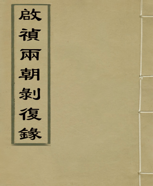 啟禎兩朝剝復錄